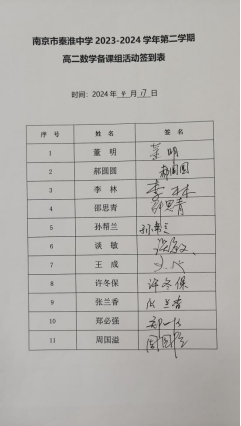 南京市秦淮中学 2023-2024 学年第二学期
高二数学备课组活动签到表
时间：2024 年 4 月 17 日
序 号 姓 名 签 名
1 董 明 董 明
2 郝圆圆 郝圆圆
3 李 林 李 林
4 邵思青 邵思青
5 孙帮兰 孙帮兰
6 谈 敏 谈敏
7 王 成
8 许冬保 许冬保
9 张兰香 张兰香
10 郑必强
11 周国溢 周国溢